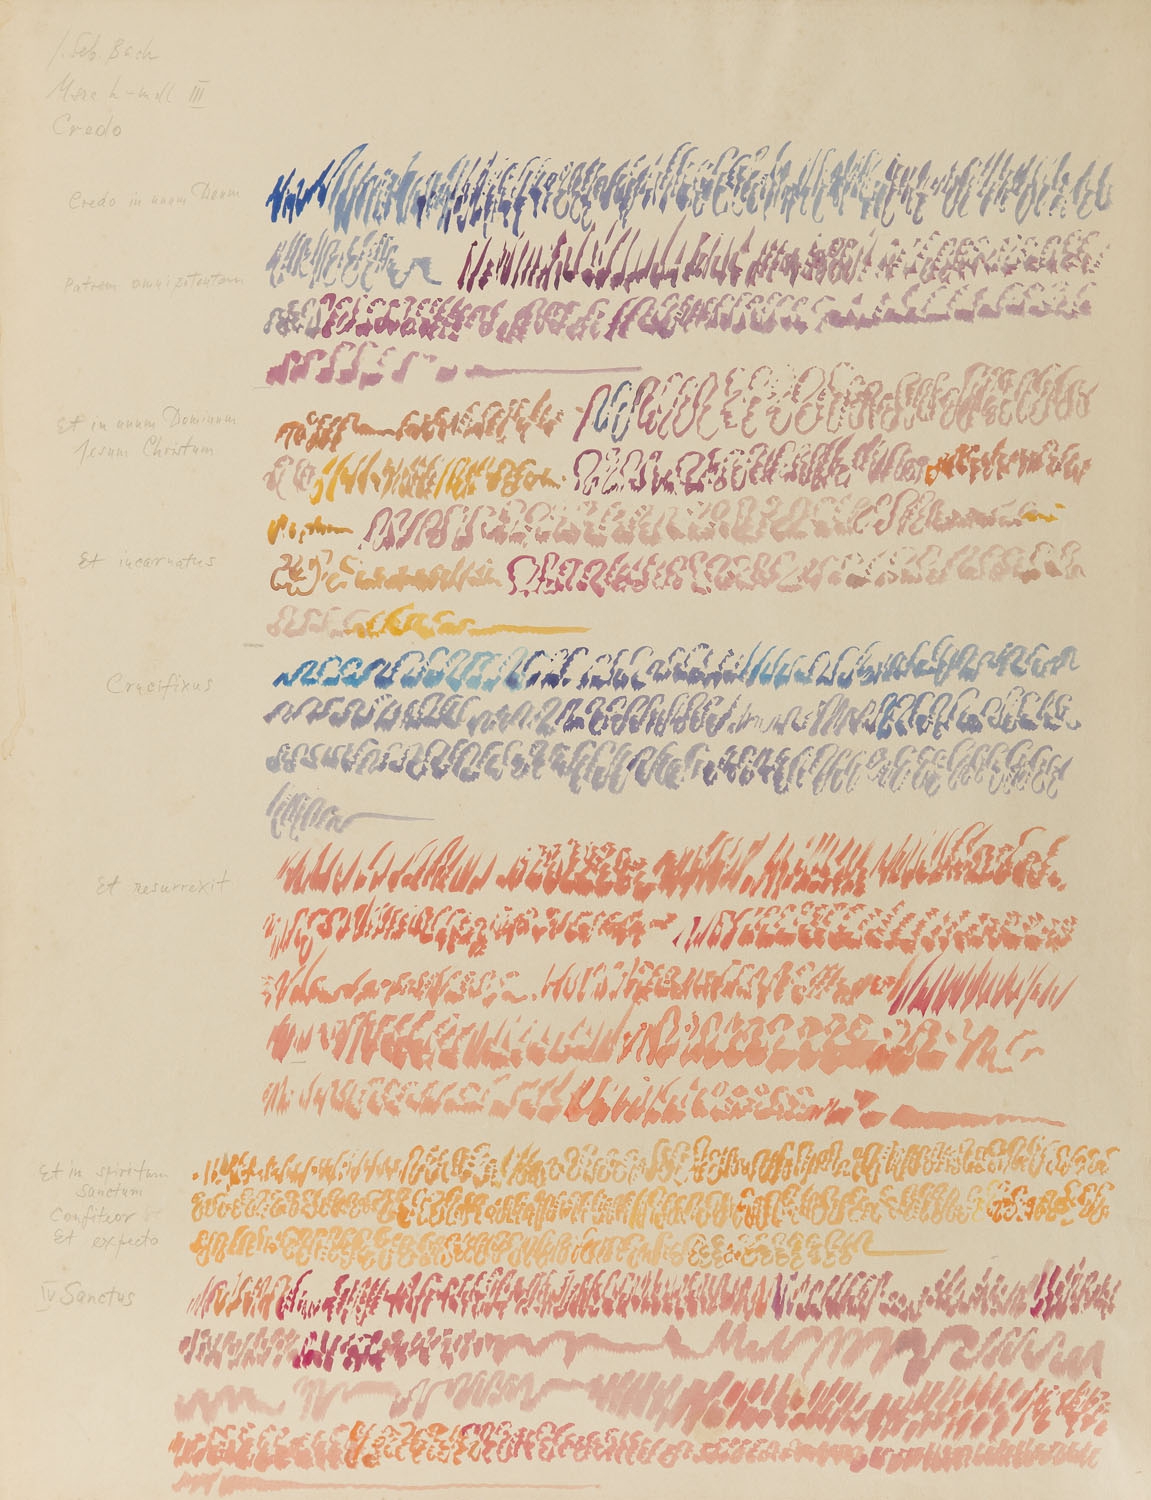 J. Seb. Bach
Messe h-moll III
Credo
Credo in unum Deum
Patrem omnipotentem
Et in unum Dominum
Jesum Christum
Et incarnatus
Crucifixus
Et resurrexit
Et in spiritum
Sanctum
Confiteor
Et expecto
IV Sanctus